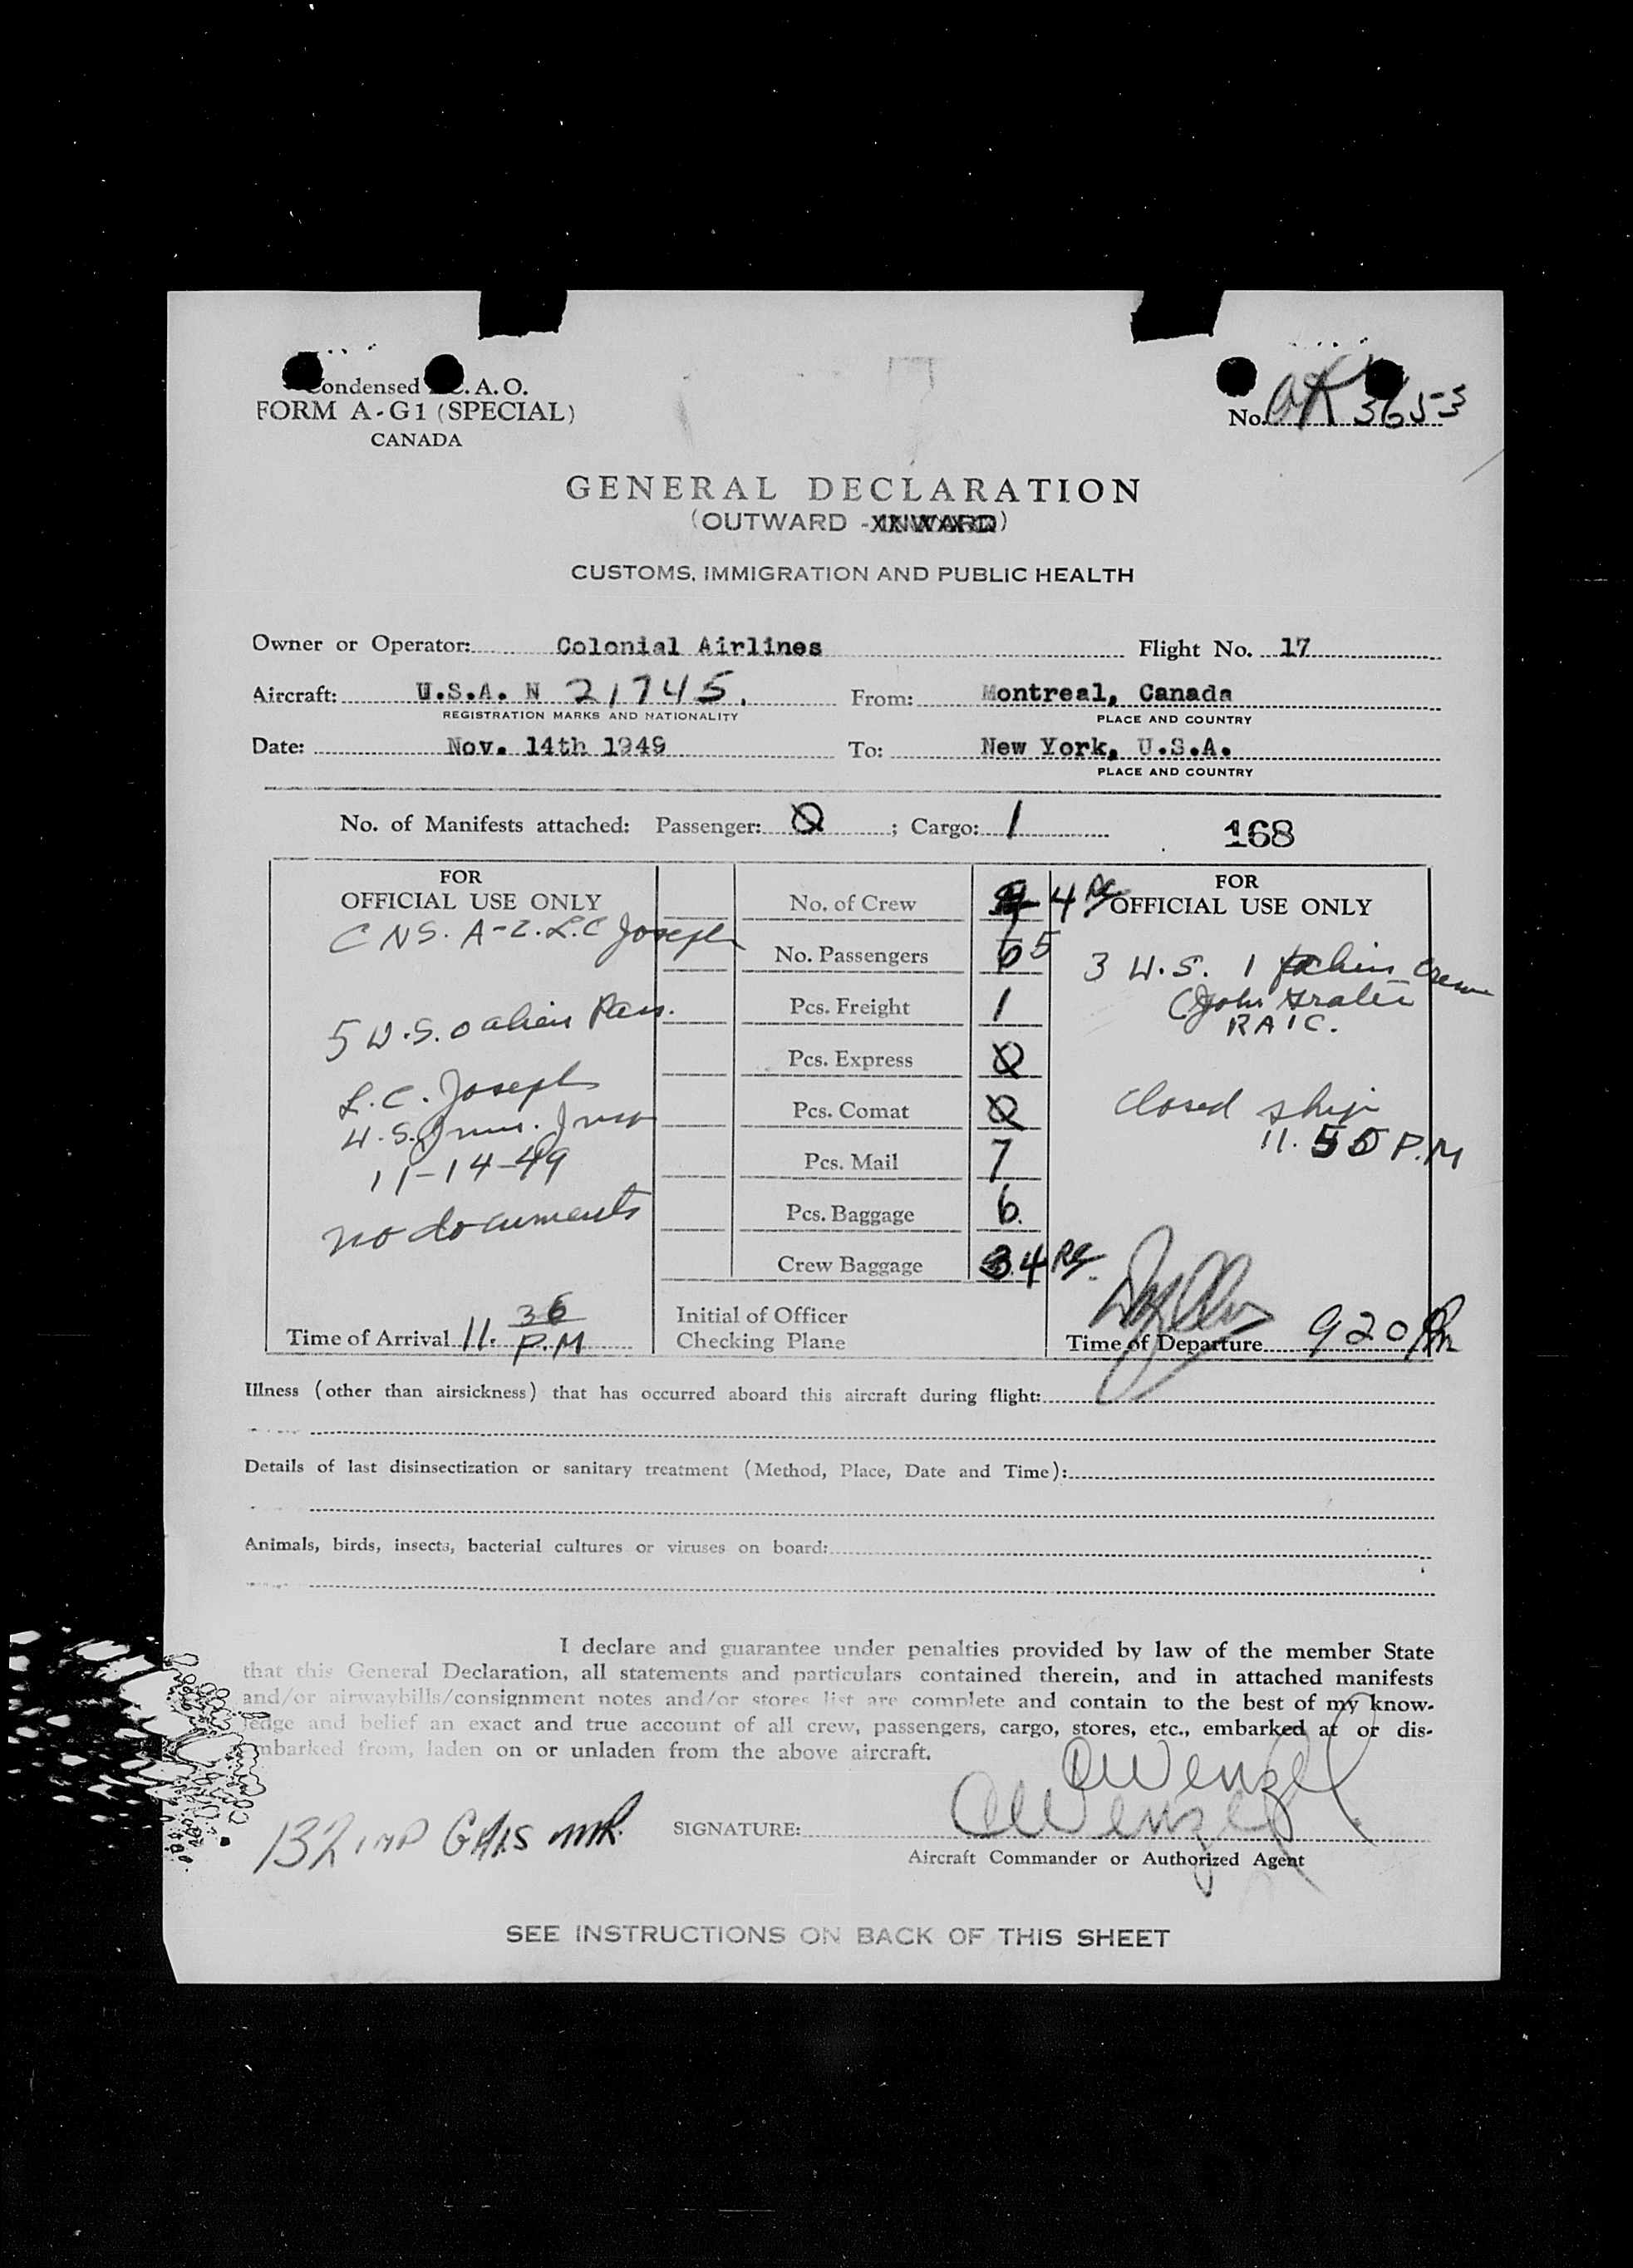 Condensed I.C.A.O.
FORM A-G1 (SPECIAL)
CANADA
No. OK 3653
GENERAL DECLARATION
(OUTWARD - INWARD)
CUSTOMS, IMMIGRATION AND PUBLIC HEALTH
Owner or Operator: Colonial Airlines Flight No. 17
Aircraft: U.S.A. N 21745. From: Montreal, Canada
REGISTRATION MARKS AND NATIONALITY PLACE AND COUNTRY
Date: Nov. 14th 1949 To: New York, U.S.A.
PLACE AND COUNTRY
No. of Manifests attached: Passenger: 0 ; Cargo: 1 168
FOR
OFFICIAL USE ONLY
CNS. A-2. L.C Joseph
5 U.S. 0 alien Pass.
L.C. Joseph
U.S. Imm. Insp
11-14-49
no documents
Time of Arrival 11. 36 P.M
No. of Crew 4
No. Passengers 6 5
Pcs. Freight 1
Pcs. Express 0
Pcs. Comat 0
Pcs. Mail 7
Pcs. Baggage 6.
Crew Baggage 3 4
Initial of Officer
Checking Plane
FOR
OFFICIAL USE ONLY
3 U.S. 1 alien Crew
(John
RAIC.
Closed ship
11.55 P.M
Time of Departure 920 Pm
Illness (other than airsickness) that has occurred aboard this aircraft during flight:
Details of last disinsectization or sanitary treatment (Method, Place, Date and Time):
Animals, birds, insects, bacterial cultures or viruses on board:
I declare and guarantee under penalties provided by law of the member State
that this General Declaration, all statements and particulars contained therein, and in attached manifests
and/or airwaybills/consignment notes and/or stores list are complete and contain to the best of my know-
ledge and belief an exact and true account of all crew, passengers, cargo, stores, etc., embarked at or dis-
embarked from, laden on or unladen from the above aircraft.
CWenzel
132 IMP GALS
SIGNATURE: CWenzel
Aircraft Commander or Authorized Agent
SEE INSTRUCTIONS ON BACK OF THIS SHEET